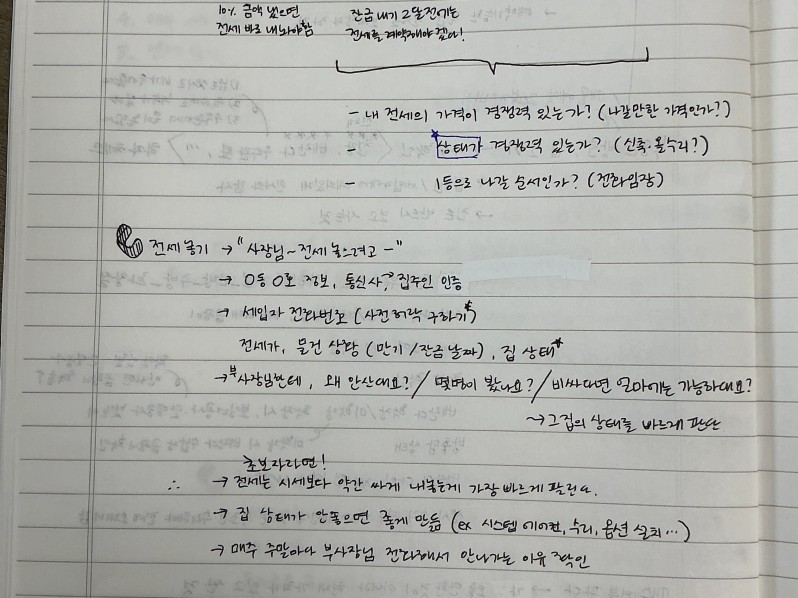 10% 금액 냈으면 잔금내기 2달전에는
전세 바로 내놔야함 전세를 계약해야 겠다!
- 내 전세의 가격이 경쟁력 있는가? (나갈만한 가격인가?)
- *상태가 경쟁력 있는가? (신축·올수리?)
- 1등으로 나갈 순서인가? (전화임장)
전세놓기 → "사장님~ 전세 놓으려고 -"
→ 0동 0호 정보, 통신사, → 집주인 인증
→ 세입자 전화번호 (사전허락 구하기*)
전세가, 물건 상황 (만기/잔금 날짜), 집 상태*
→ 부사장님한테, 왜 안산대요? / 몇명이 봤나요? / 비싸다면 얼마에는 가능하대요?
→ 그집의 상태를 바르게 판단
초보자라면!
∴ → 전세는 시세보다 약간 싸게 내놓는게 가장 빠르게 팔린다.
→ 집 상태가 안좋으면 좋게 만듦 (ex 시스템 에어컨, 수리, 옵션 설치...)
→ 매주 주말마다 부사장님 전화해서 안나가는 이유 확인